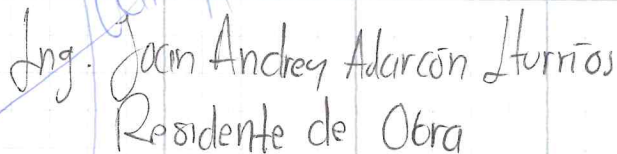 Ing. Joan Andrey Adarcón Iturrios
Residente de Obra